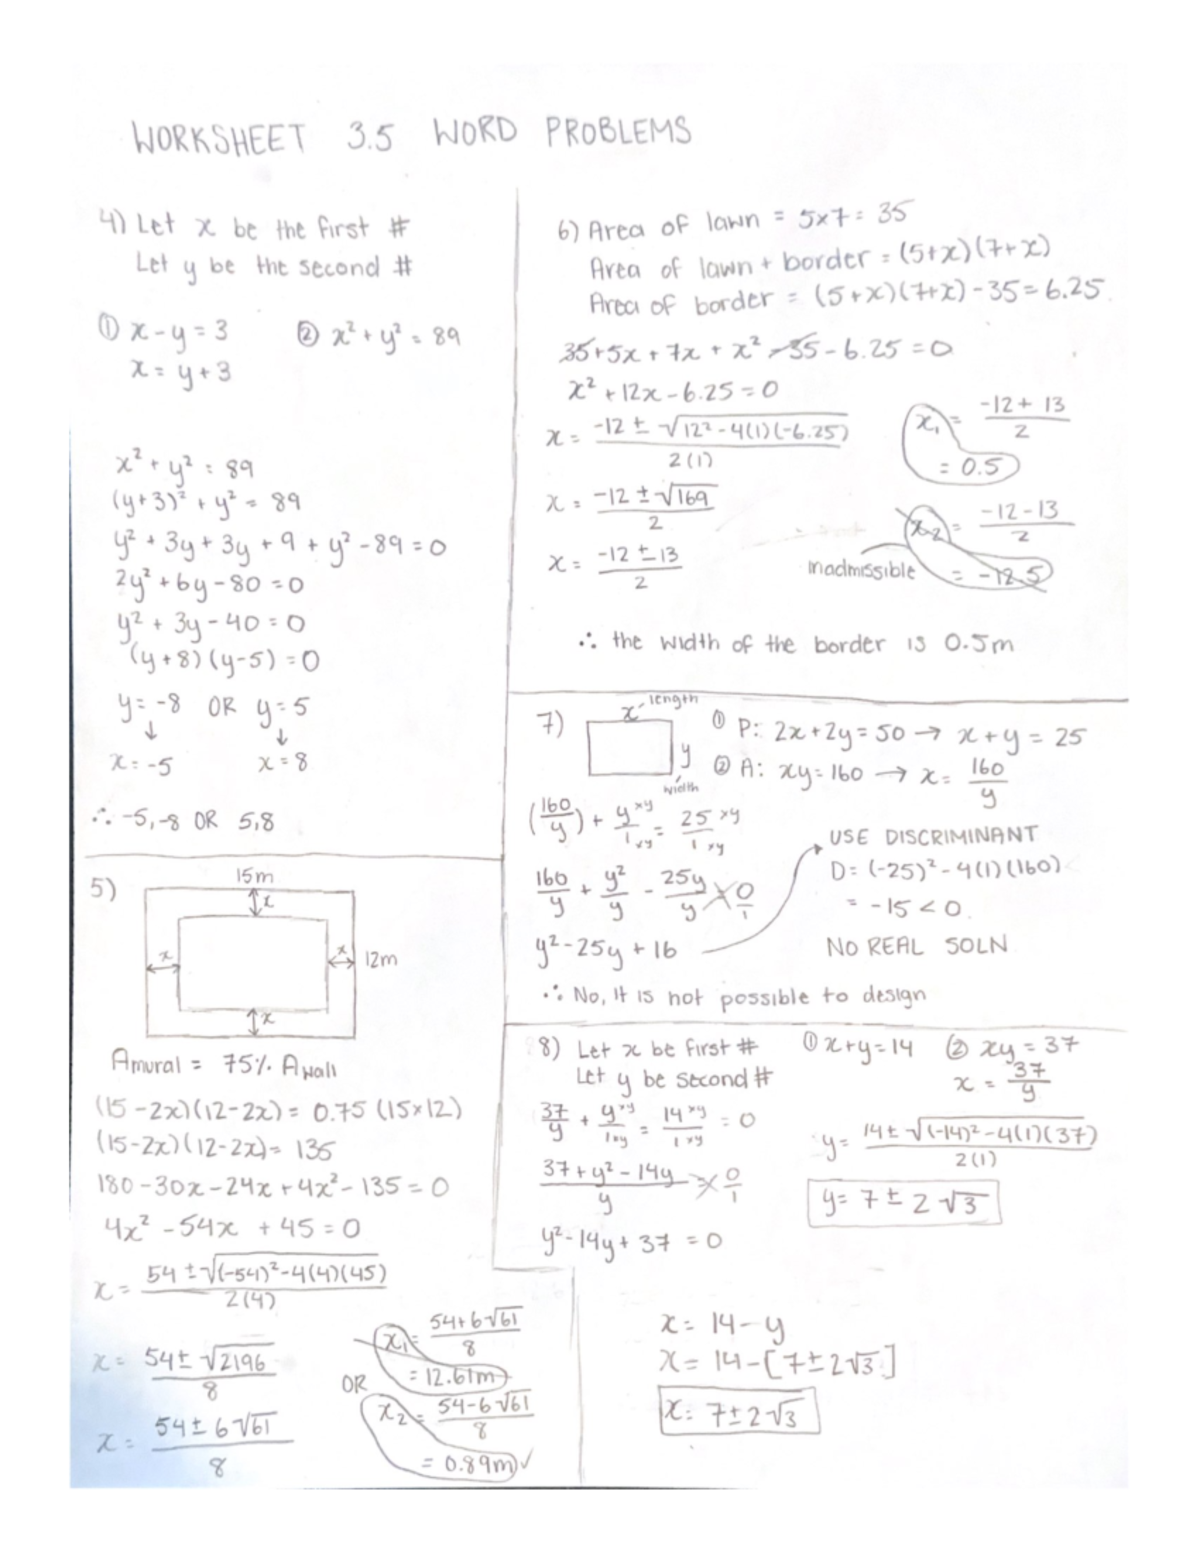 WORKSHEET 3.5 WORD PROBLEMS
4) Let x be the first #
Let y be the second #
① x - y = 3
② x² + y² = 89
x = y + 3
x² + y² = 89
(y+3)² + y² = 89
y² + 3y + 3y + 9 + y² - 89 = 0
2y² + 6y - 80 = 0
y² + 3y - 40 = 0
(y+8)(y-5) = 0
y = -8 OR y = 5
↓ ↓
x = -5 x = 8
∴ -5, -8 OR 5, 8
5)
15m
x
x
x
12m
x
Amural = 75% Awall
(15-2x)(12-2x) = 0.75 (15×12)
(15-2x)(12-2x) = 135
180 - 30x - 24x + 4x² - 135 = 0
4x² - 54x + 45 = 0
x = 54 ± √(-54)² - 4(4)(45) / 2(4)
x = 54 ± √2196 / 8
x = 54 ± 6√61 / 8
x₁ = 54 + 6√61 / 8
= 12.61m
OR
x₂ = 54 - 6√61 / 8
= 0.89m ✓
6) Area of lawn = 5×7 = 35
Area of lawn + border = (5+x)(7+x)
Area of border = (5+x)(7+x) - 35 = 6.25
35 + 5x + 7x + x² - 35 - 6.25 = 0
x² + 12x - 6.25 = 0
x = -12 ± √12² - 4(1)(-6.25) / 2(1)
x = -12 ± √169 / 2
x = -12 ± 13 / 2
x₁ = -12 + 13 / 2
= 0.5
x₂ = -12 - 13 / 2
= -12.5
inadmissible
∴ the width of the border is 0.5m
7)
x - length
y
width
① P: 2x + 2y = 50 → x + y = 25
② A: xy = 160 → x = 160/y
(160/y) + y/1 ×y ×y = 25/1 ×y ×y
160/y + y²/y - 25y/y = 0/1
y² - 25y + 16
USE DISCRIMINANT
D = (-25)² - 4(1)(160)
= -15 < 0
NO REAL SOLN
∴ No, it is not possible to design
8) Let x be first #
Let y be second #
① x + y = 14
② xy = 37
x = 37/y
37/y + y/1 ×y ×y = 14/1 ×y ×y = 0
37 + y² - 14y / y = 0/1
y² - 14y + 37 = 0
y = 14 ± √(-14)² - 4(1)(37) / 2(1)
y = 7 ± 2√3
x = 14 - y
x = 14 - [7 ± 2√3]
x = 7 ± 2√3